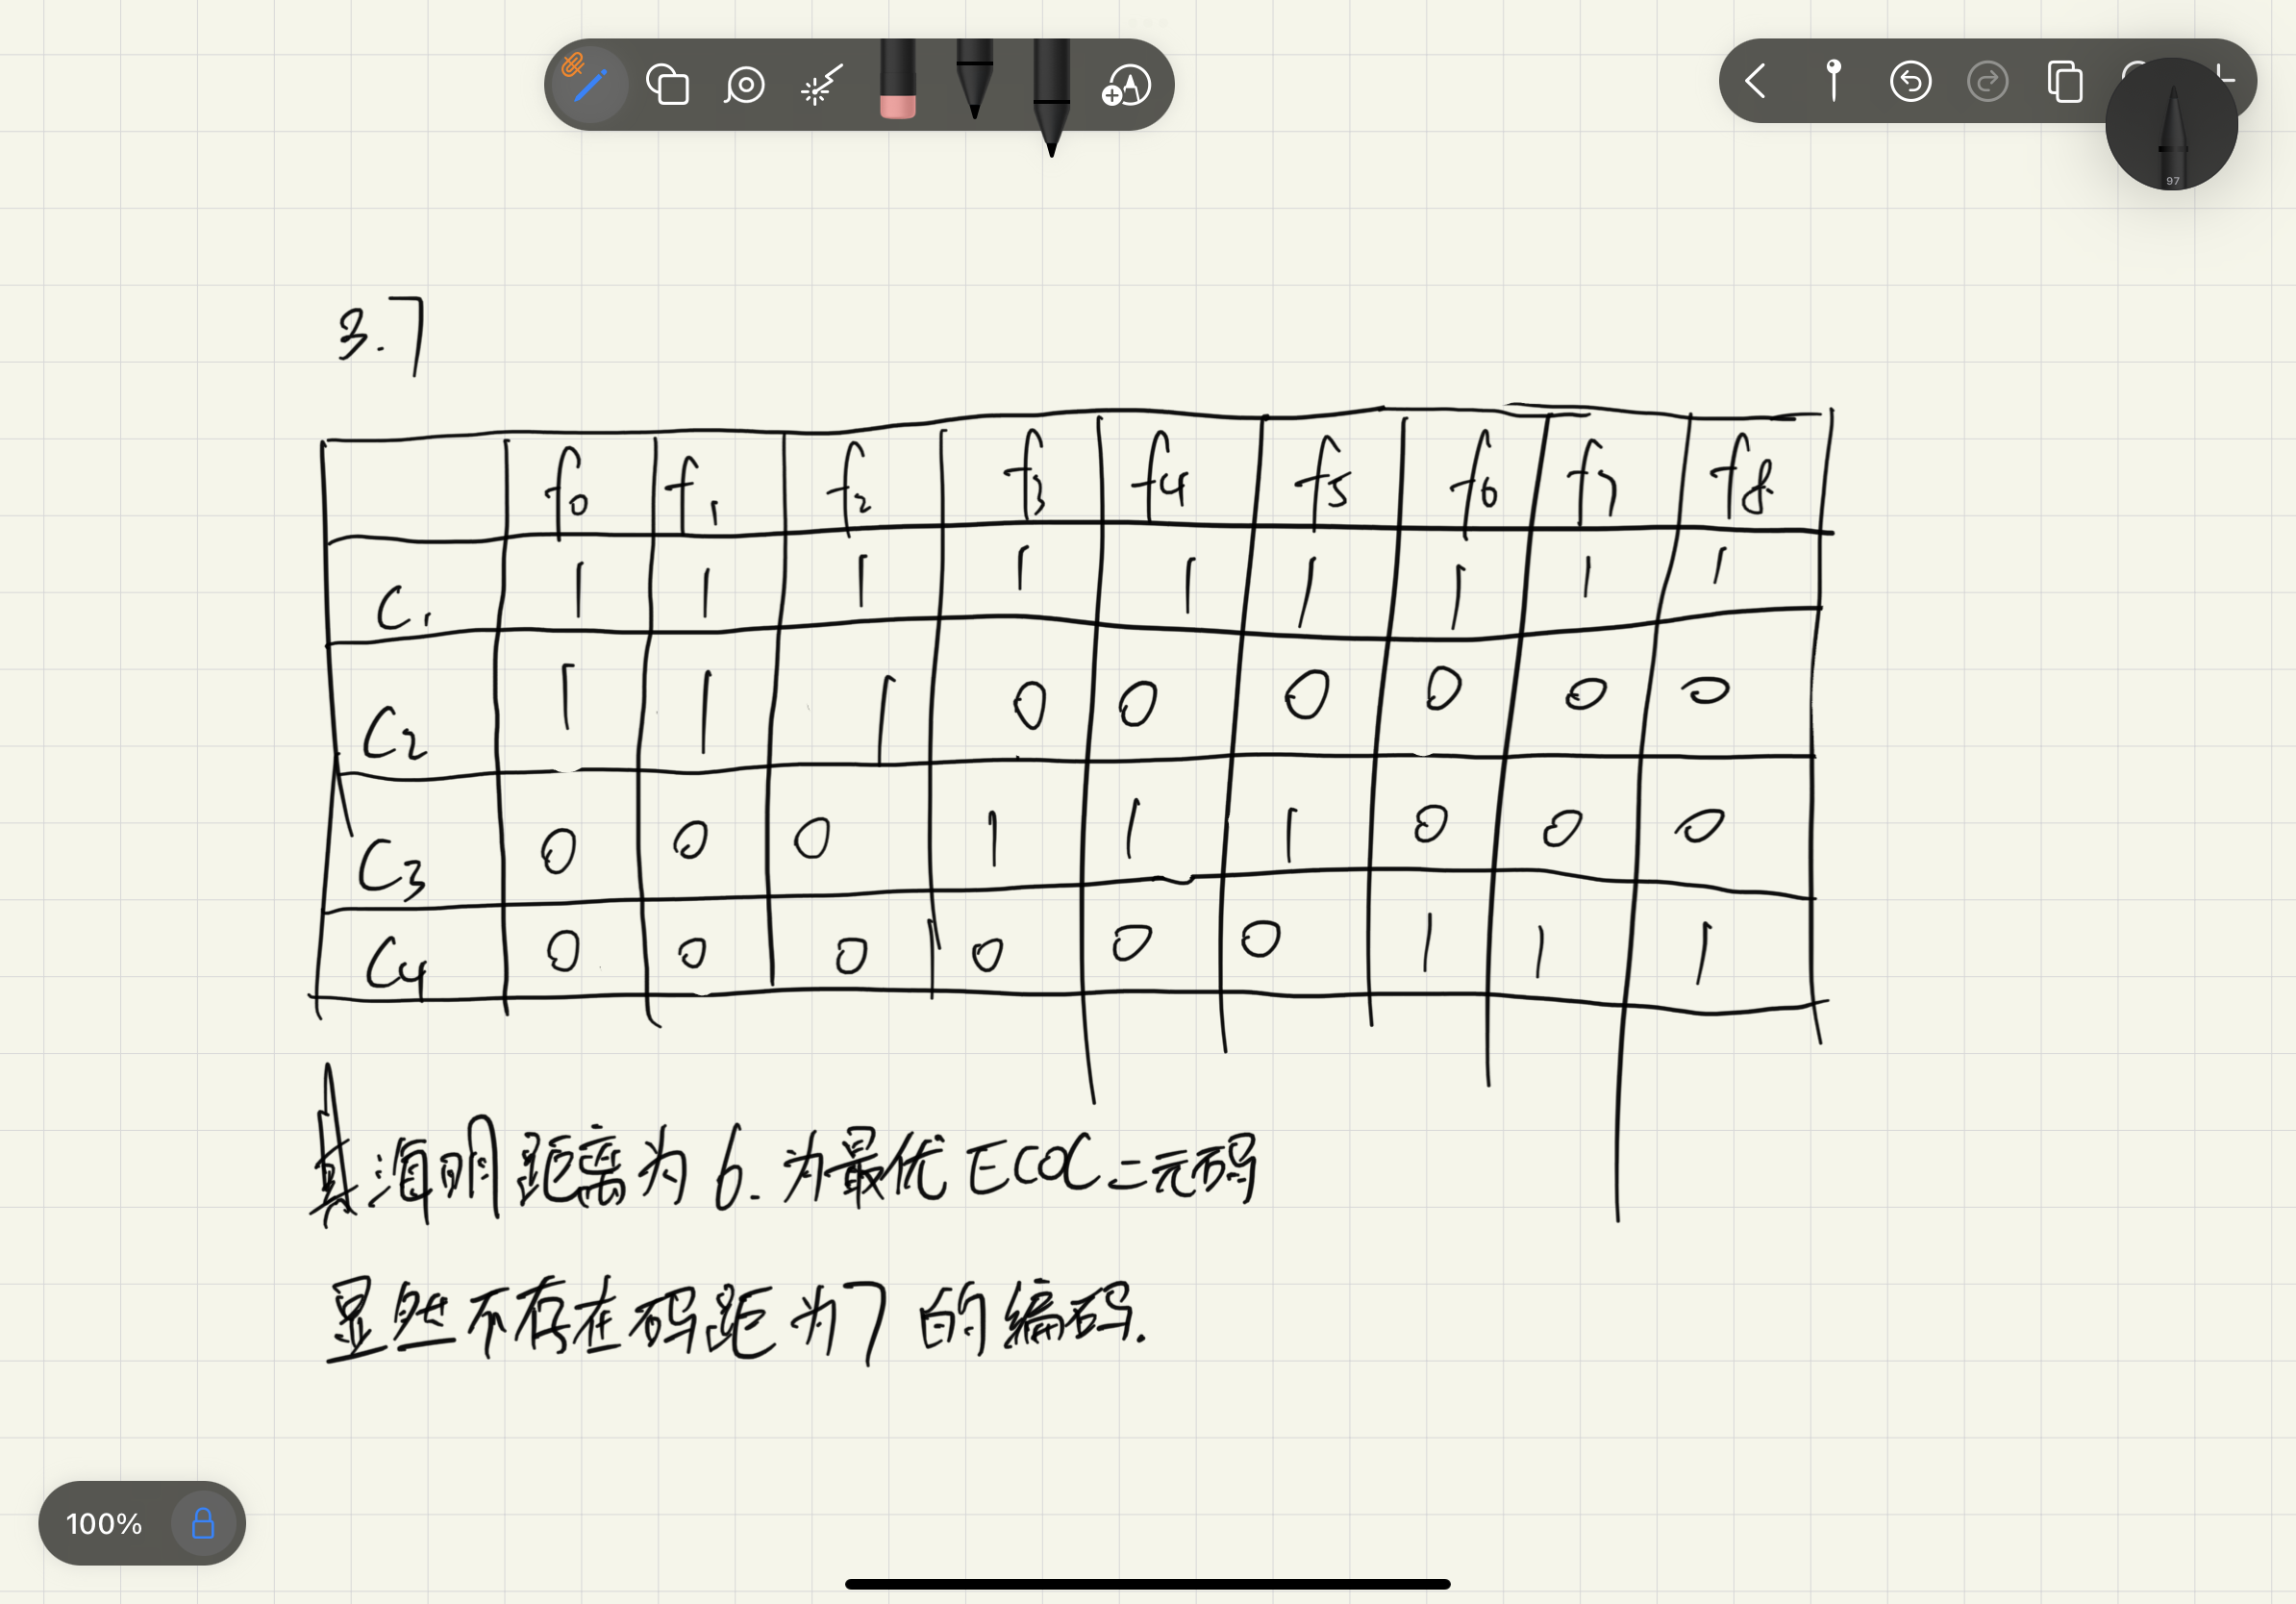 97
3.7
f0 f1 f2 f3 f4 f5 f6 f7 f8
C1 1 1 1 1 1 1 1 1 1
C2 1 1 1 0 0 0 0 0 0
C3 0 0 0 1 1 1 0 0 0
C4 0 0 0 0 0 0 1 1 1
其海明距离为6.为最优ECOC二元码
显然不存在码距为7的编码.
100%